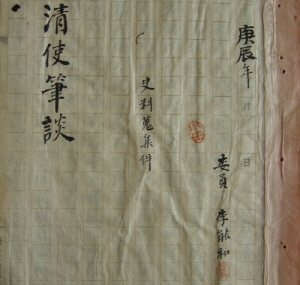 庚辰年 月 日
委員 李能和
史料蒐集件
清使筆談